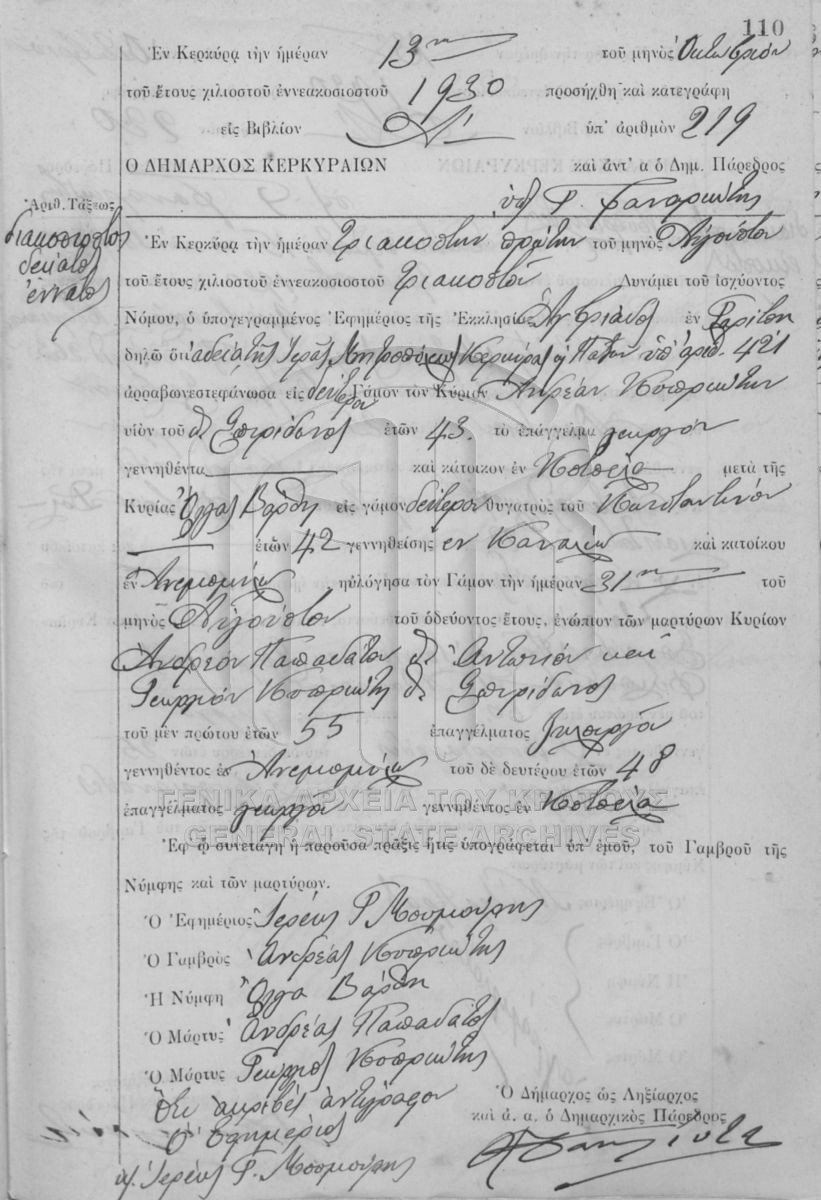 110
Ἐν Κερκύρᾳ τὴν ἡμέραν 13ην τοῦ μηνὸς Ὀκτωβρίου
τοῦ ἔτους χιλιοστοῦ ἐννεακοσιοστοῦ 1930 προσήχθη καὶ κατεγράφη
εἰς Βιβλίον Α' ὑπ' ἀριθμὸν 219
Ο ΔΗΜΑΡΧΟΣ ΚΕΡΚΥΡΑΙΩΝ καὶ ἀντ' α ὁ Δημ. Πάρεδρος
Γ.
Ἀριθ. Τάξεως
διακοσιοστὸς
δέκατος
ἔννατος
Ἐν Κερκύρᾳ τὴν ἡμέραν τριακοστὴν πρώτην τοῦ μηνὸς Αὐγούστου
τοῦ ἔτους χιλιοστοῦ ἐννεακοσιοστοῦ τριακοστοῦ Δυνάμει τοῦ ἰσχύοντος
Νόμου, ὁ ὑπογεγραμμένος Ἐφημέριος τῆς Ἐκκλησίας ἐν Γαρίτσῃ
δηλῶ ὅτι ἀδείᾳ τῆς Ἱερᾶς Μητροπόλεως Κερκύρας ὑπ' ἀριθ. 421
ἀρραβωνεστεφάνωσα εἰς δεύτερον Γάμον τὸν Κύριον Ἀνδρέαν
υἱὸν τοῦ Σπυρίδωνος ἐτῶν 43. τὸ ἐπάγγελμα γεωργὸν
γεννηθέντα καὶ κάτοικον ἐν μετὰ τῆς
Κυρίας Ὄλγας Βάρθη εἰς γάμον δεύτερον θυγατρὸς τοῦ Κωνσταντίνου
ἐτῶν 42 γεννηθείσης ἐν Καναλίῳ καὶ κατοίκου
ἐν Ἀνεμομύλῳ ηὐλόγησα τὸν Γάμον τὴν ἡμέραν 31ην τοῦ
μηνὸς Αὐγούστου τοῦ ὁδεύοντος ἔτους, ἐνώπιον τῶν μαρτύρων Κυρίων
Ἀνδρέου Παπαδάτου Ἀντωνίου καὶ
Γεωργίου Σπυρίδωνος
τοῦ μὲν πρώτου ἐτῶν 55 ἐπαγγέλματος
γεννηθέντος ἐν Ἀνεμομύλῳ τοῦ δὲ δευτέρου ἐτῶν 48
ἐπαγγέλματος γεωργοῦ γεννηθέντος ἐν
ΓΕΝΙΚΑ ΑΡΧΕΙΑ ΤΟΥ ΚΡΑΤΟΥΣ
GENERAL STATE ARCHIVES
Ἐφ ᾧ συνετάγη ἡ παροῦσα πρᾶξις ἥτις ὑπογράφεται ὑπ' ἐμοῦ, τοῦ Γαμβροῦ τῆς
Νύμφης καὶ τῶν μαρτύρων.
Ὁ Ἐφημέριος Ἱερεὺς Γ.
Ὁ Γαμβρὸς Ἀνδρέας
Ἡ Νύμφη Ὄλγα Βάρθη
Ὁ Μάρτυς Ἀνδρέας Παπαδάτος
Ὁ Μάρτυς Γεώργιος
Ὅτι ἀκριβὲς ἀντίγραφον
Ὁ Ἐφημέριος
Ἱερεὺς Γ.
Ὁ Δήμαρχος ὡς Ληξίαρχος
καὶ ἀ. α. ὁ Δημαρχικὸς Πάρεδρος